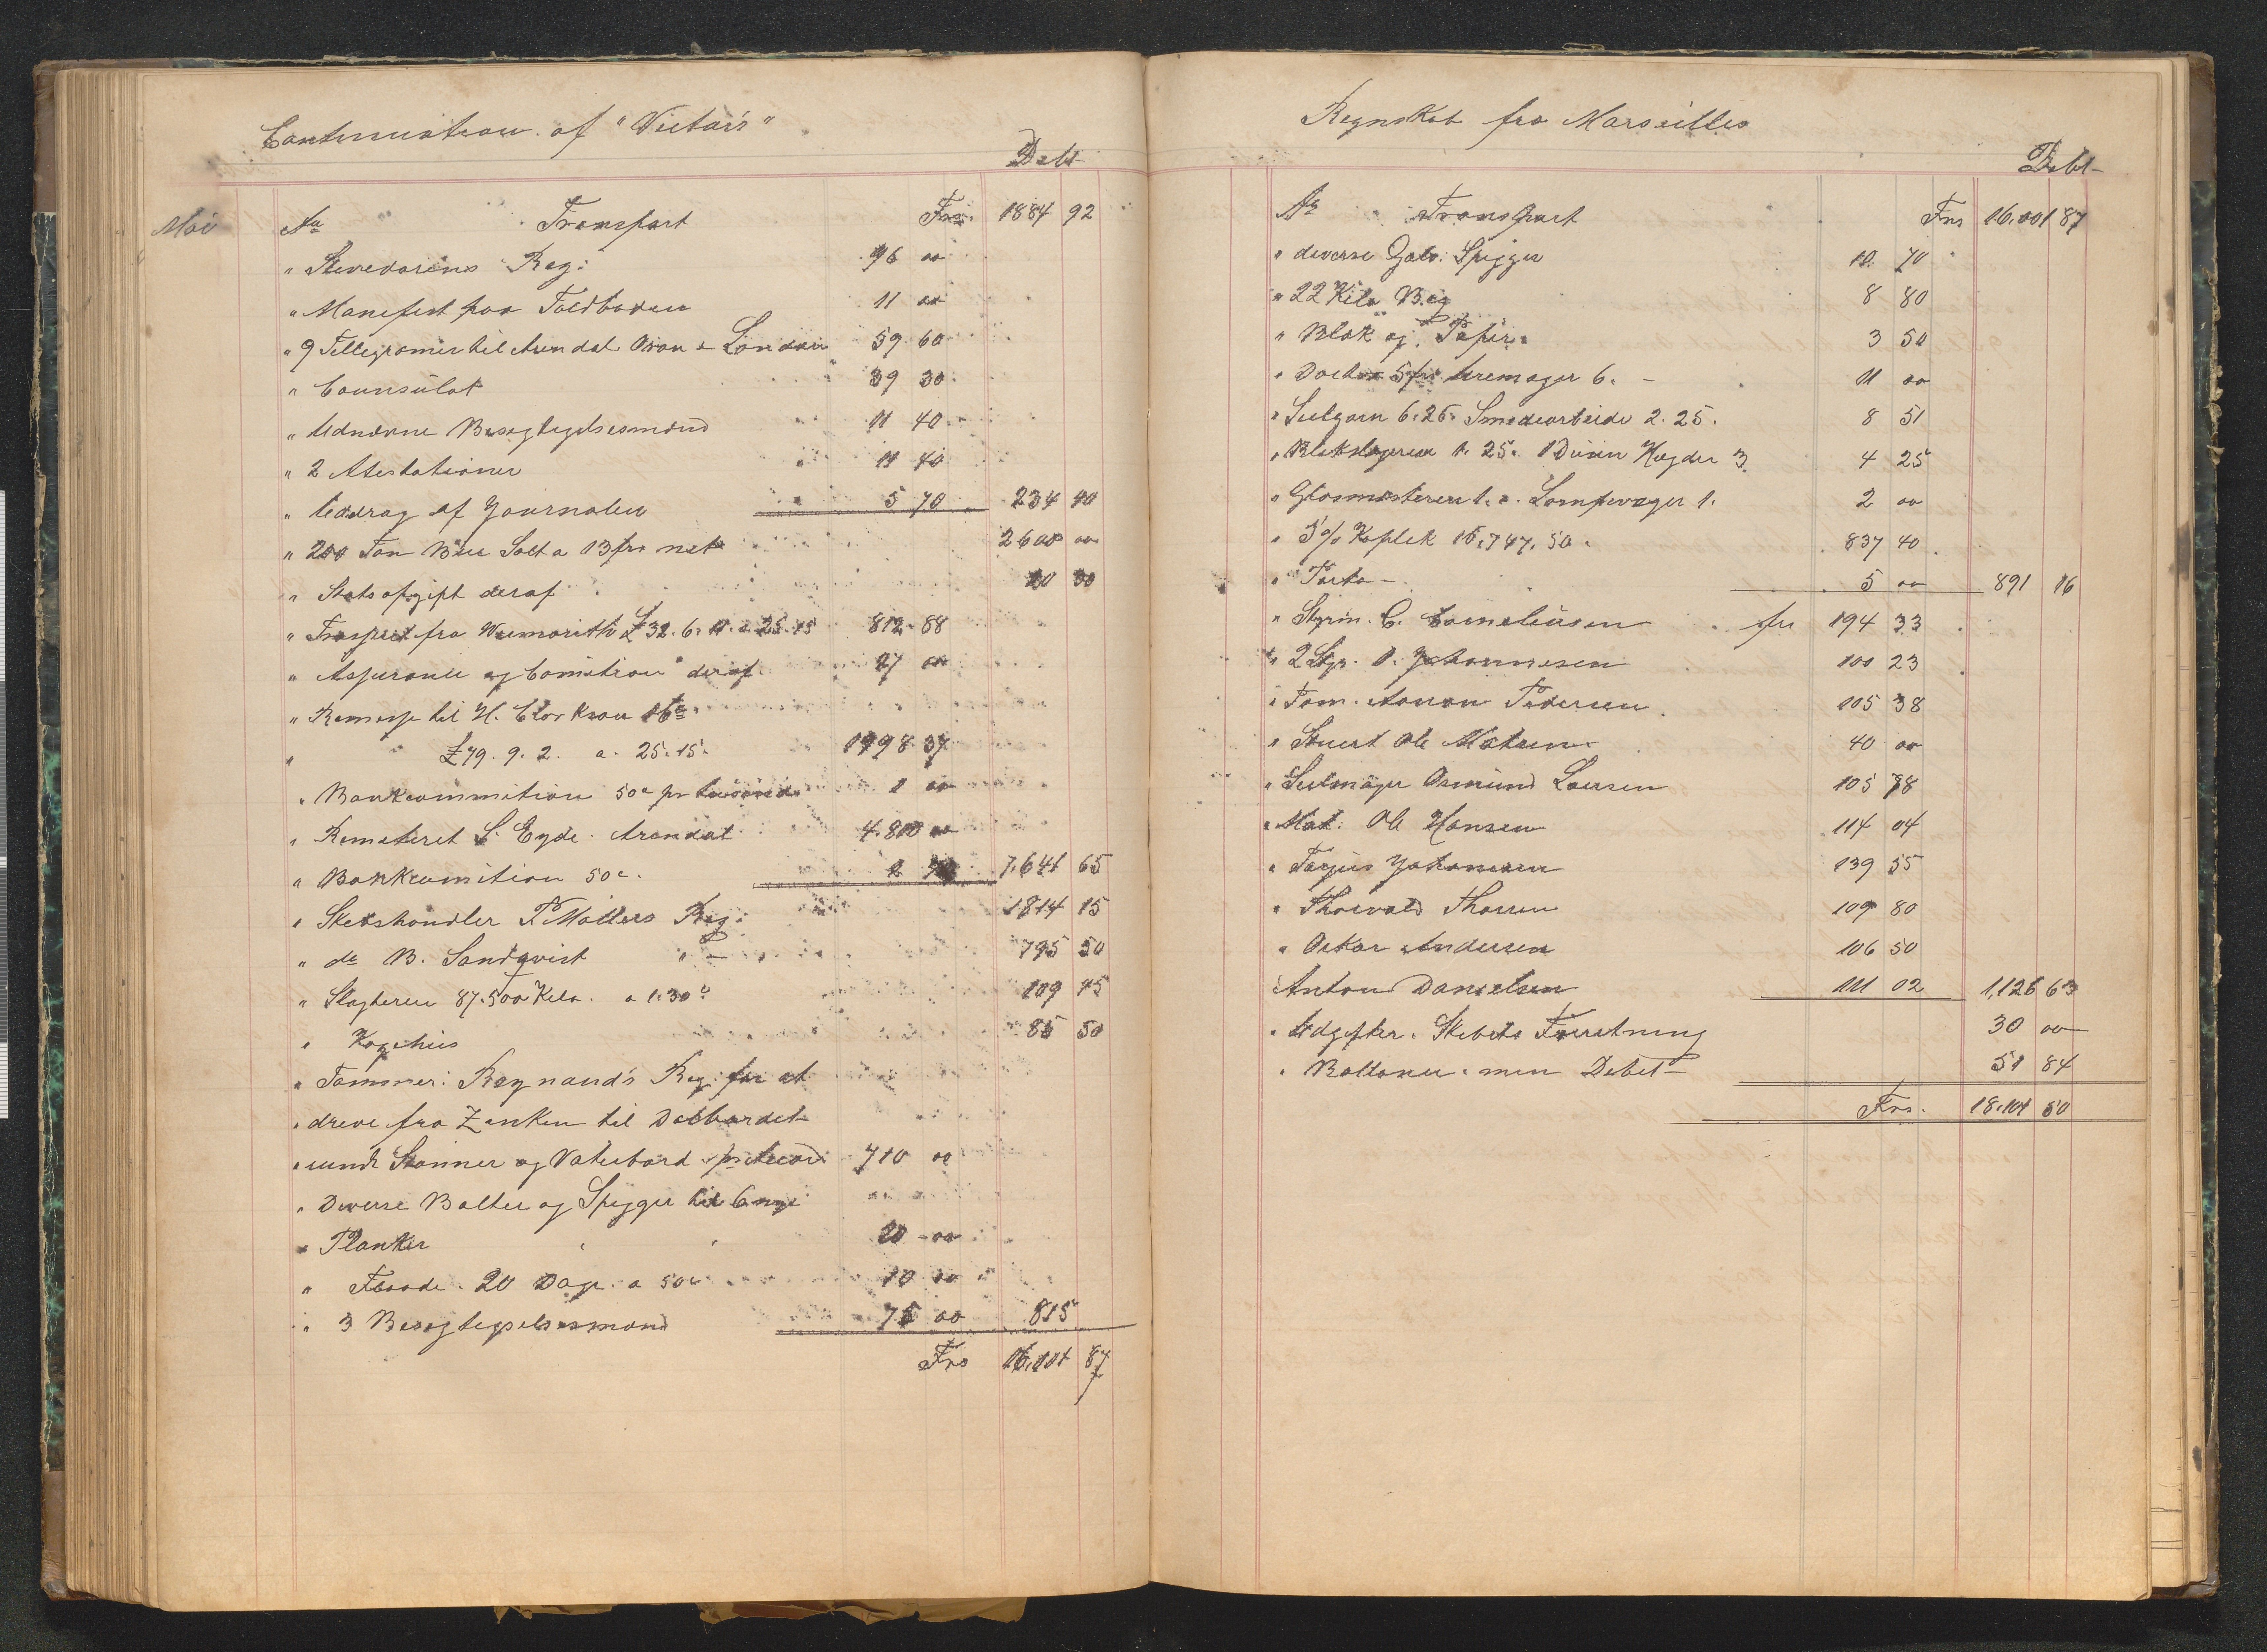 Continuation af "Victor's"
Debt
Mai Aa Transport Frs. 1884 92
" Stevedorens Reg: 96 00
" Manifest paa Toldboden 11 00
" 9 Tellegramer til Arendal Oran & London 59 60
" Counsulat 39 30
" Udnævne Besegtigelsesmænd 11 40
" 2 Atestationer 11 40
" Uddrag af Journalen 5 70 234 40
" 200 Ton Salt a 13 frs net 2600 00
" Statsafgift deraf 20 30
" fra £32. 6. 11. a 25.15 812 88
" Assurance og Comition deraf 27 00
" Remesse til H. Clarkson
" £79. 9. 2. a. 25.15. 1998 37
" Bankcommition 50c pr 1 00
" Remeteret S. Eyde Arendal 4.800 00
" Bankcomition 50c. 2 7,641 65
" Skibshandler P Møllers Reg: 1814 15
" do B. Sandqvist " — 795 50
" Slagteren 87.500 Kilo. a 1.30c 109 45
" Kogehus 85 50
" Tømmer: Reynaud's Reg: for at
" dreve fra Zinken til Dolbordet
" rundt Stønner og Vaterbord pr Accord 710 00
" Diverse Bolter og Spigger til
" Planker 20 00
" Flaade. 20 Dage a 50c 10 00
" 3 Besegtigelsesmænd 75 00 815
Frs 16,001 87
Regnskab fra Marseilles
Debt
Aa Transport Frs 16.001 87
" diverse Galv: Spigger 10. 70
" 22 Kilo Beg 8 80
" Blæk og Papir 3 50
" 5 frs 6. – 11 00
" Seilgarn 6.26. Smedearbeide 2.25. 8 51
" Blikslageren 1.25. 1 Dusin Hægder 3. 4 25
" Glasmesteren 1. a. Lampevæger 1. 2 00
" 5% Kaplak 16,747.50. 837 40
" Porto – 5 00 891 16
" Styrm. C. Corneliusen frs 194 33
" 2 Styr. O. Johannesen 100 23
" Tøm. Aanon Pedersen 105 38
" Stuert Ole Matsen 40 00
" Seilmager Osmund Larsen 105 78
" Mat: Ole Hansen 114 04
" Terjus Johannesen 139 55
" Thorvald Thorsen 109 80
" Oskar Andersen 106 50
Anton Danielsen 111 02 1,126 63
" Udgifter. Skibets Forretning 30 00
" Ballance. min Debet 51 84
Frs. 18.101 50